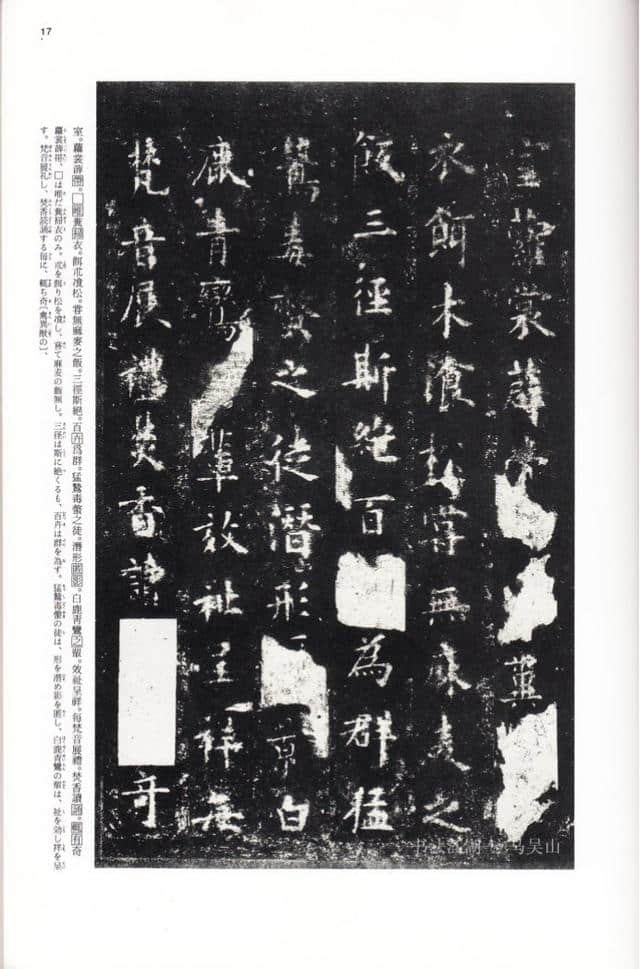 17
室蘿裳薜糞
衣餌朮飡松嘗無麻麦之
飯三徑斯絶百為群猛
鷙毒螫之徒潜形白
鹿青鸞輩效祉呈祥每
梵音展禮焚香讀奇
室。蘿裳薜帶。□唯糞掃衣。餌朮飡松。嘗無麻麥之飯。三徑斯絕。百卉爲群。猛鷙毒螫之徒。潛形匿影。白鹿青鸞之輩。效祉呈祥。每梵音展禮。焚香讀誦。輒有奇
蘿裳薜帯、□は唯だ糞掃衣のみ。朮を餌り松を飡し、嘗て麻麦の飯無し。三径は斯に絶くるも、百卉は群を為す。猛鷙毒螫の徒は、形を潜め影を匿し、白鹿青鸞の輩は、祉を効し祥を呈
す。梵音展礼し、焚香読誦する毎に、輒ち奇〔禽異獣の〕、